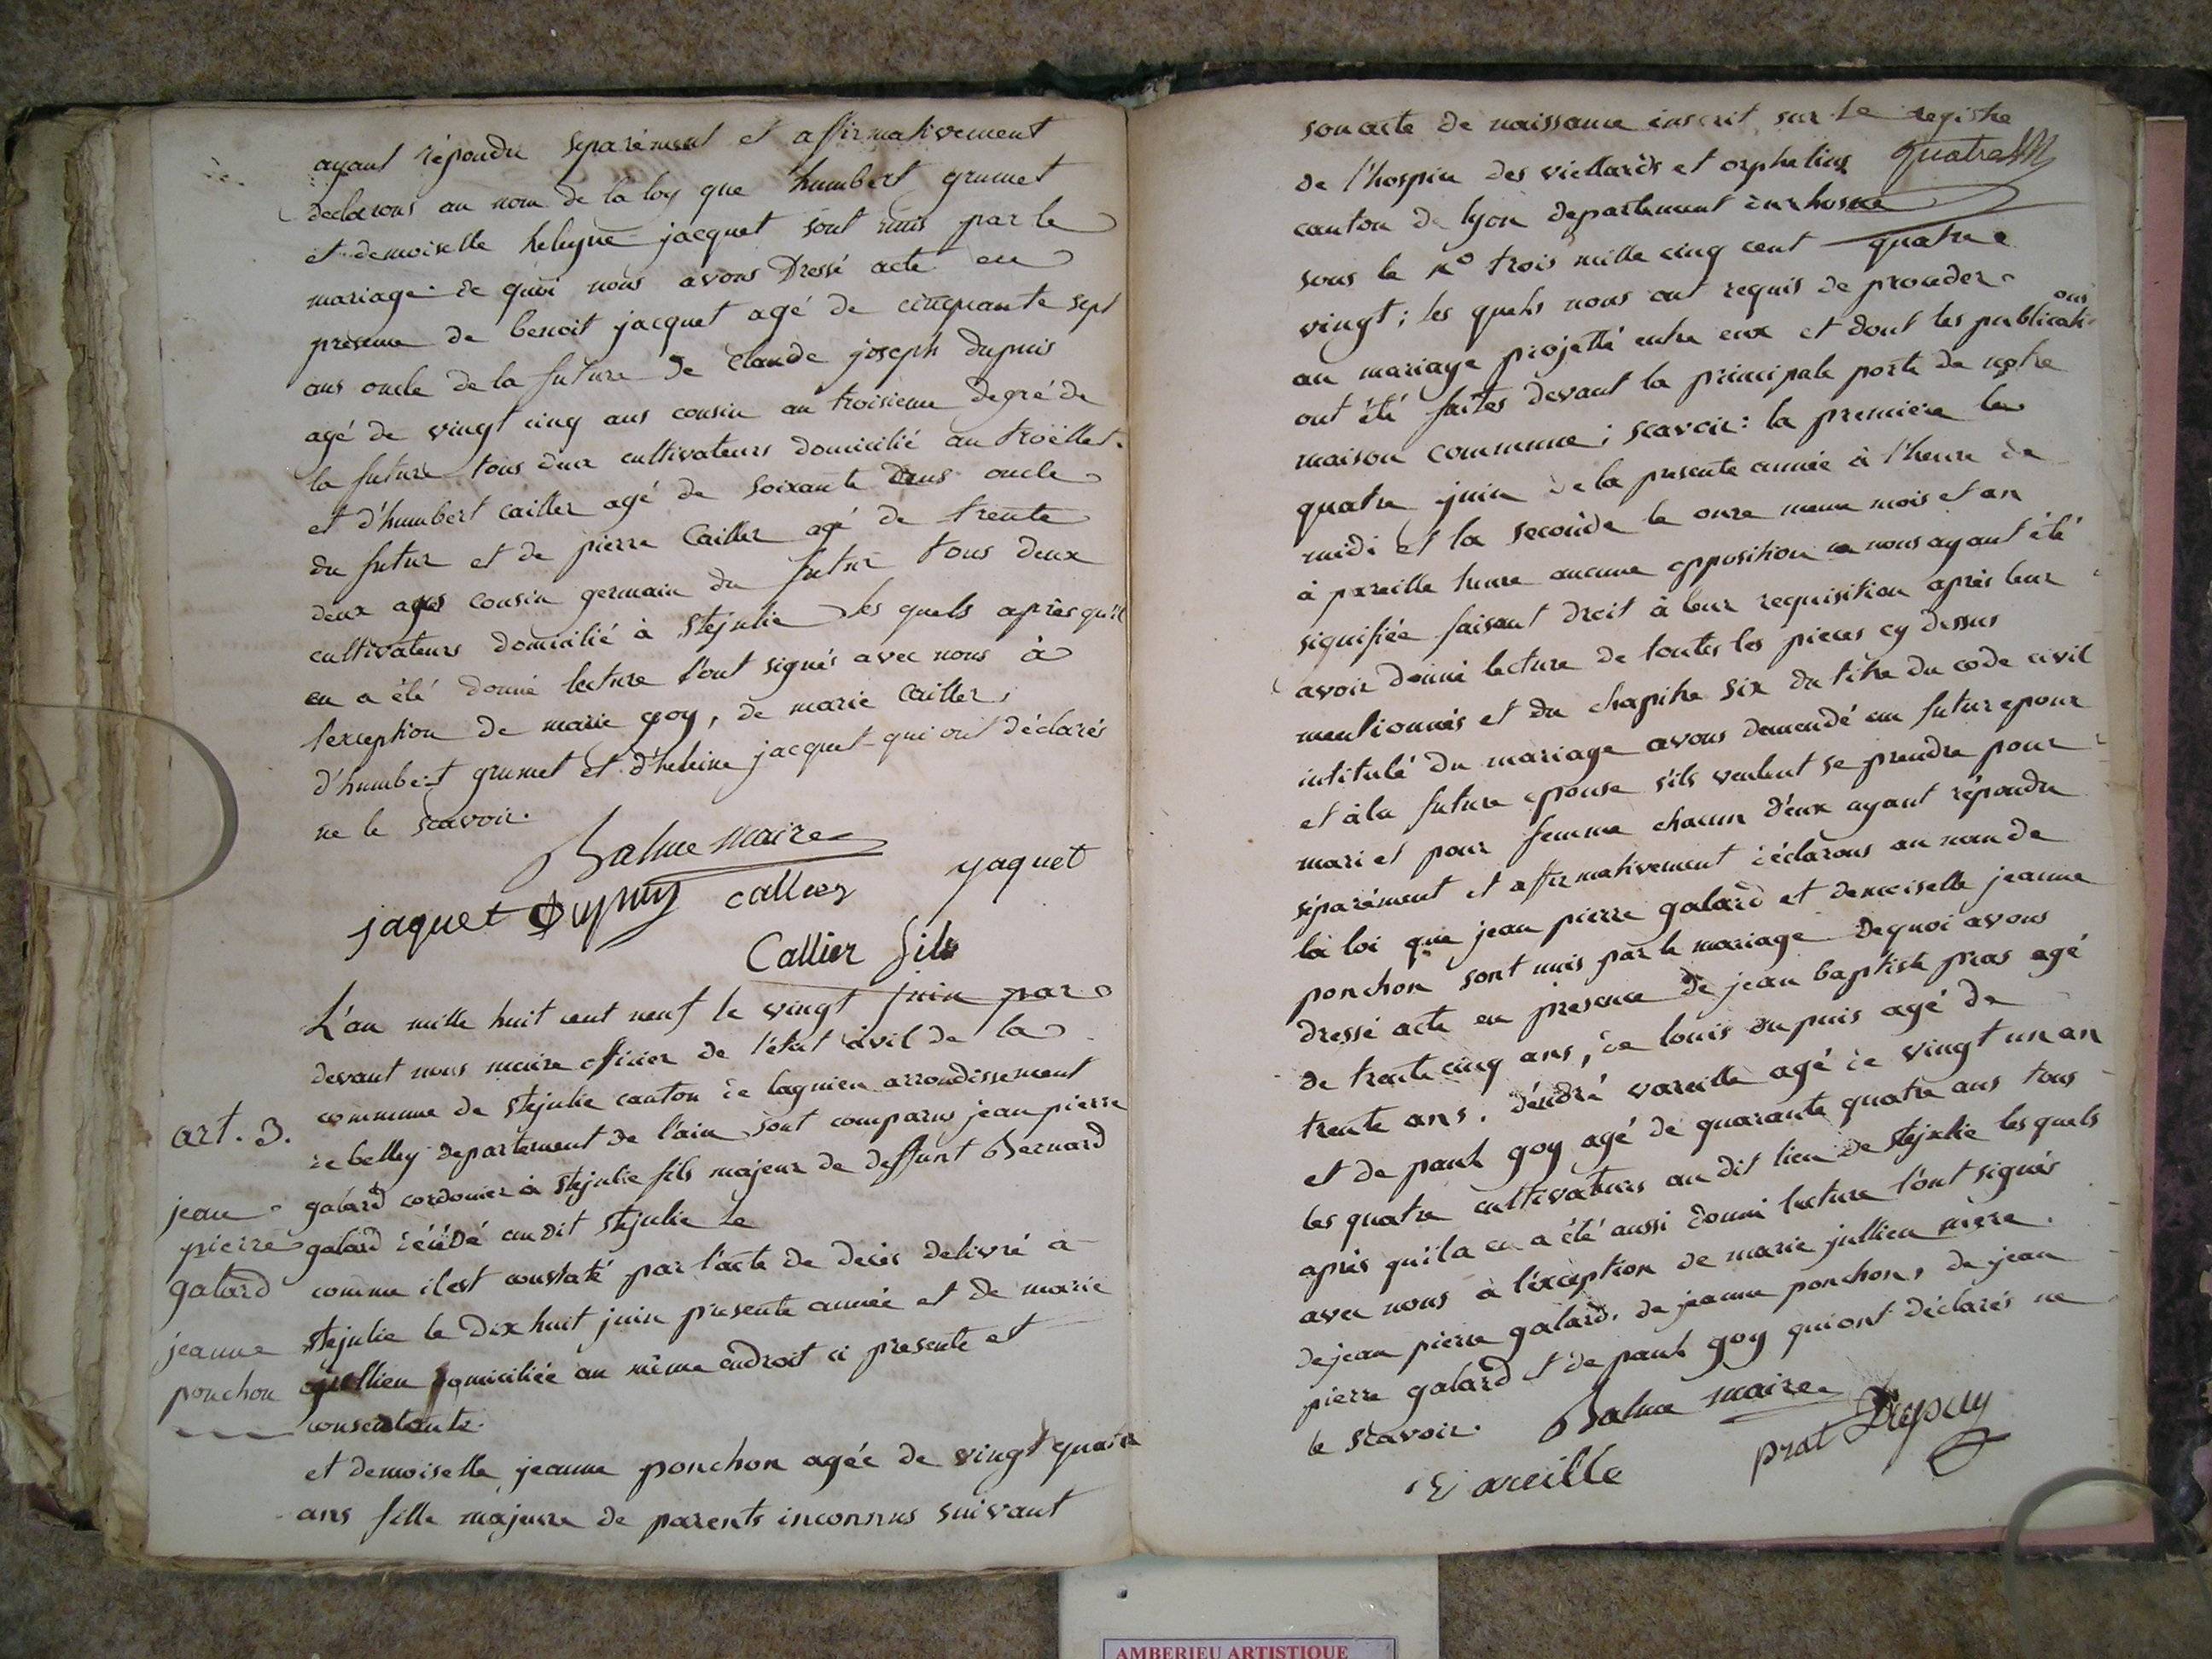 ayant répondu separément et affirmativement
declarons au nom de la loy que humbert grumet
et demoiselle heleyne jacquet sont unis par le
mariage de quoi nous avons Dressé acte en
presence de benoit jacquet agé de cinquante sept
ans oncle de la future de Claude joseph dupuis
agé de vingt cinq ans cousin au troisieme degré de
la future tous deux cultivateurs domicilié au troëllet
et d'humbert cailler agé de soixante ans oncle
du futur et de pierre Cailler agé de trente
deux ans cousin germain du futur tous deux
cultivateurs domicilié à stejulie les quels après qu'il
en a été donné lecture l'ont signés avec nous à
l'exception de marie goy, de marie Cailler,
d'humbert grumet et d'heleine jacquet qui ont déclarés
ne le scavoir.
Balme maire
jaquet Dupuy callier yaquet
Callier fils
L'an mille huit cent neuf le vingt juin par
devant nous maire officier de l'état civil de la
commune de stejulie canton de lagnieu arrondissement
art. 3.
de belley departement de l'ain sont comparus jean pierre
galard cordonier à stejulie fils majeur de deffunt Bernard
jean
pierre
galard
jeanne
ponchon
galard décédé audit stejulie le
comme il est constaté par l'acte de decès delivré a
stejulie le dix huit juin presente année et de marie
jullien domiciliée au même endroit ci presente et
consentante.
et demoiselle jeanne ponchon agée de vingt quatre
ans fille majeure de parents inconnus suivant
son acte de naissance inscrit sur le registre
de l'hospice des viellards et orphelins quatre
canton de lyon departement du rhosne
sous le n° trois mille cinq cent quatre
vingt; les quels nous ont requis de proceder
au mariage projetté entre eux et dont les publications
ont été faites devant la principale porte de notre
maison commune; scavoir: la premiere le
quatre juin de la presente année à l'heure de
midi et la seconde le onze meme mois et an
à pareille heure aucune opposition ne nous ayant été
signifiée faisant droit à leur requisition après leur
avoir donné lecture de toutes les pieces cy dessus
mentionnés et du chapitre six du titre du code civil
intitulé du mariage avons demendé au futur epoux
et à la future epouse s'ils veulent se prendre pour
mari et pour femme chacun d'eux ayant répondu
séparément et affirmativement déclarons au nom de
la loi que jean pierre galard et demoiselle jeanne
ponchon sont unis par le mariage dequoi avons
dressé acte en presence de jean baptiste pras agé
de trente cinq ans, de louis dupuis agé de
trente ans. d'endré vareille agé de vingt un an
et de paul goy agé de quarante quatre ans tous
les quatre cultivateurs au dit lieu de stejulie les quels
après qu'il en a été aussi donné lecture l'ont signés
avec nous à l'éxception de marie jullien mere.
de jean pierre galard. de jeanne ponchon, de jean
pierre galard et de paul goy qui ont déclarés ne
le scavoir. Balme maire
Vareille prat Dupuy
AMBERIEU ARTISTIQUE